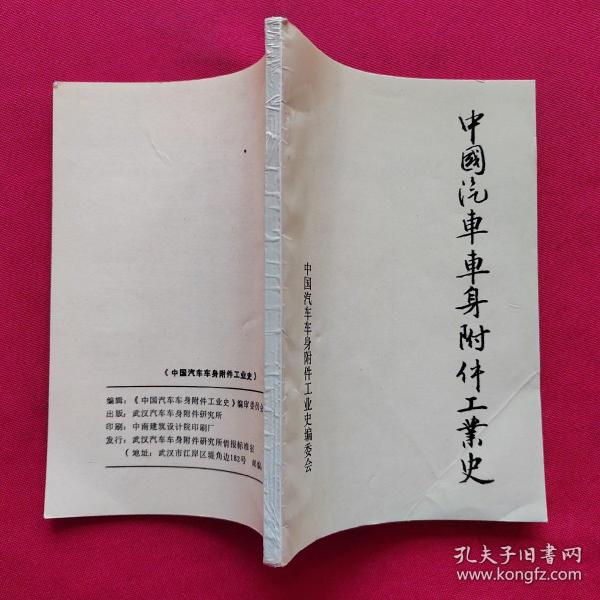 中國汽車車身附件工業史
中国汽车车身附件工业史编委会
《中国汽车车身附件工业史》
编辑：《中国汽车车身附件工业史》编审委员会
出版：武汉汽车车身附件研究所
印刷：中南建筑设计院印刷厂
发行：武汉汽车车身附件研究所情报标准室
（地址：武汉市江岸区堤角边182号 邮编
孔夫子旧书网
www.kongfz.com